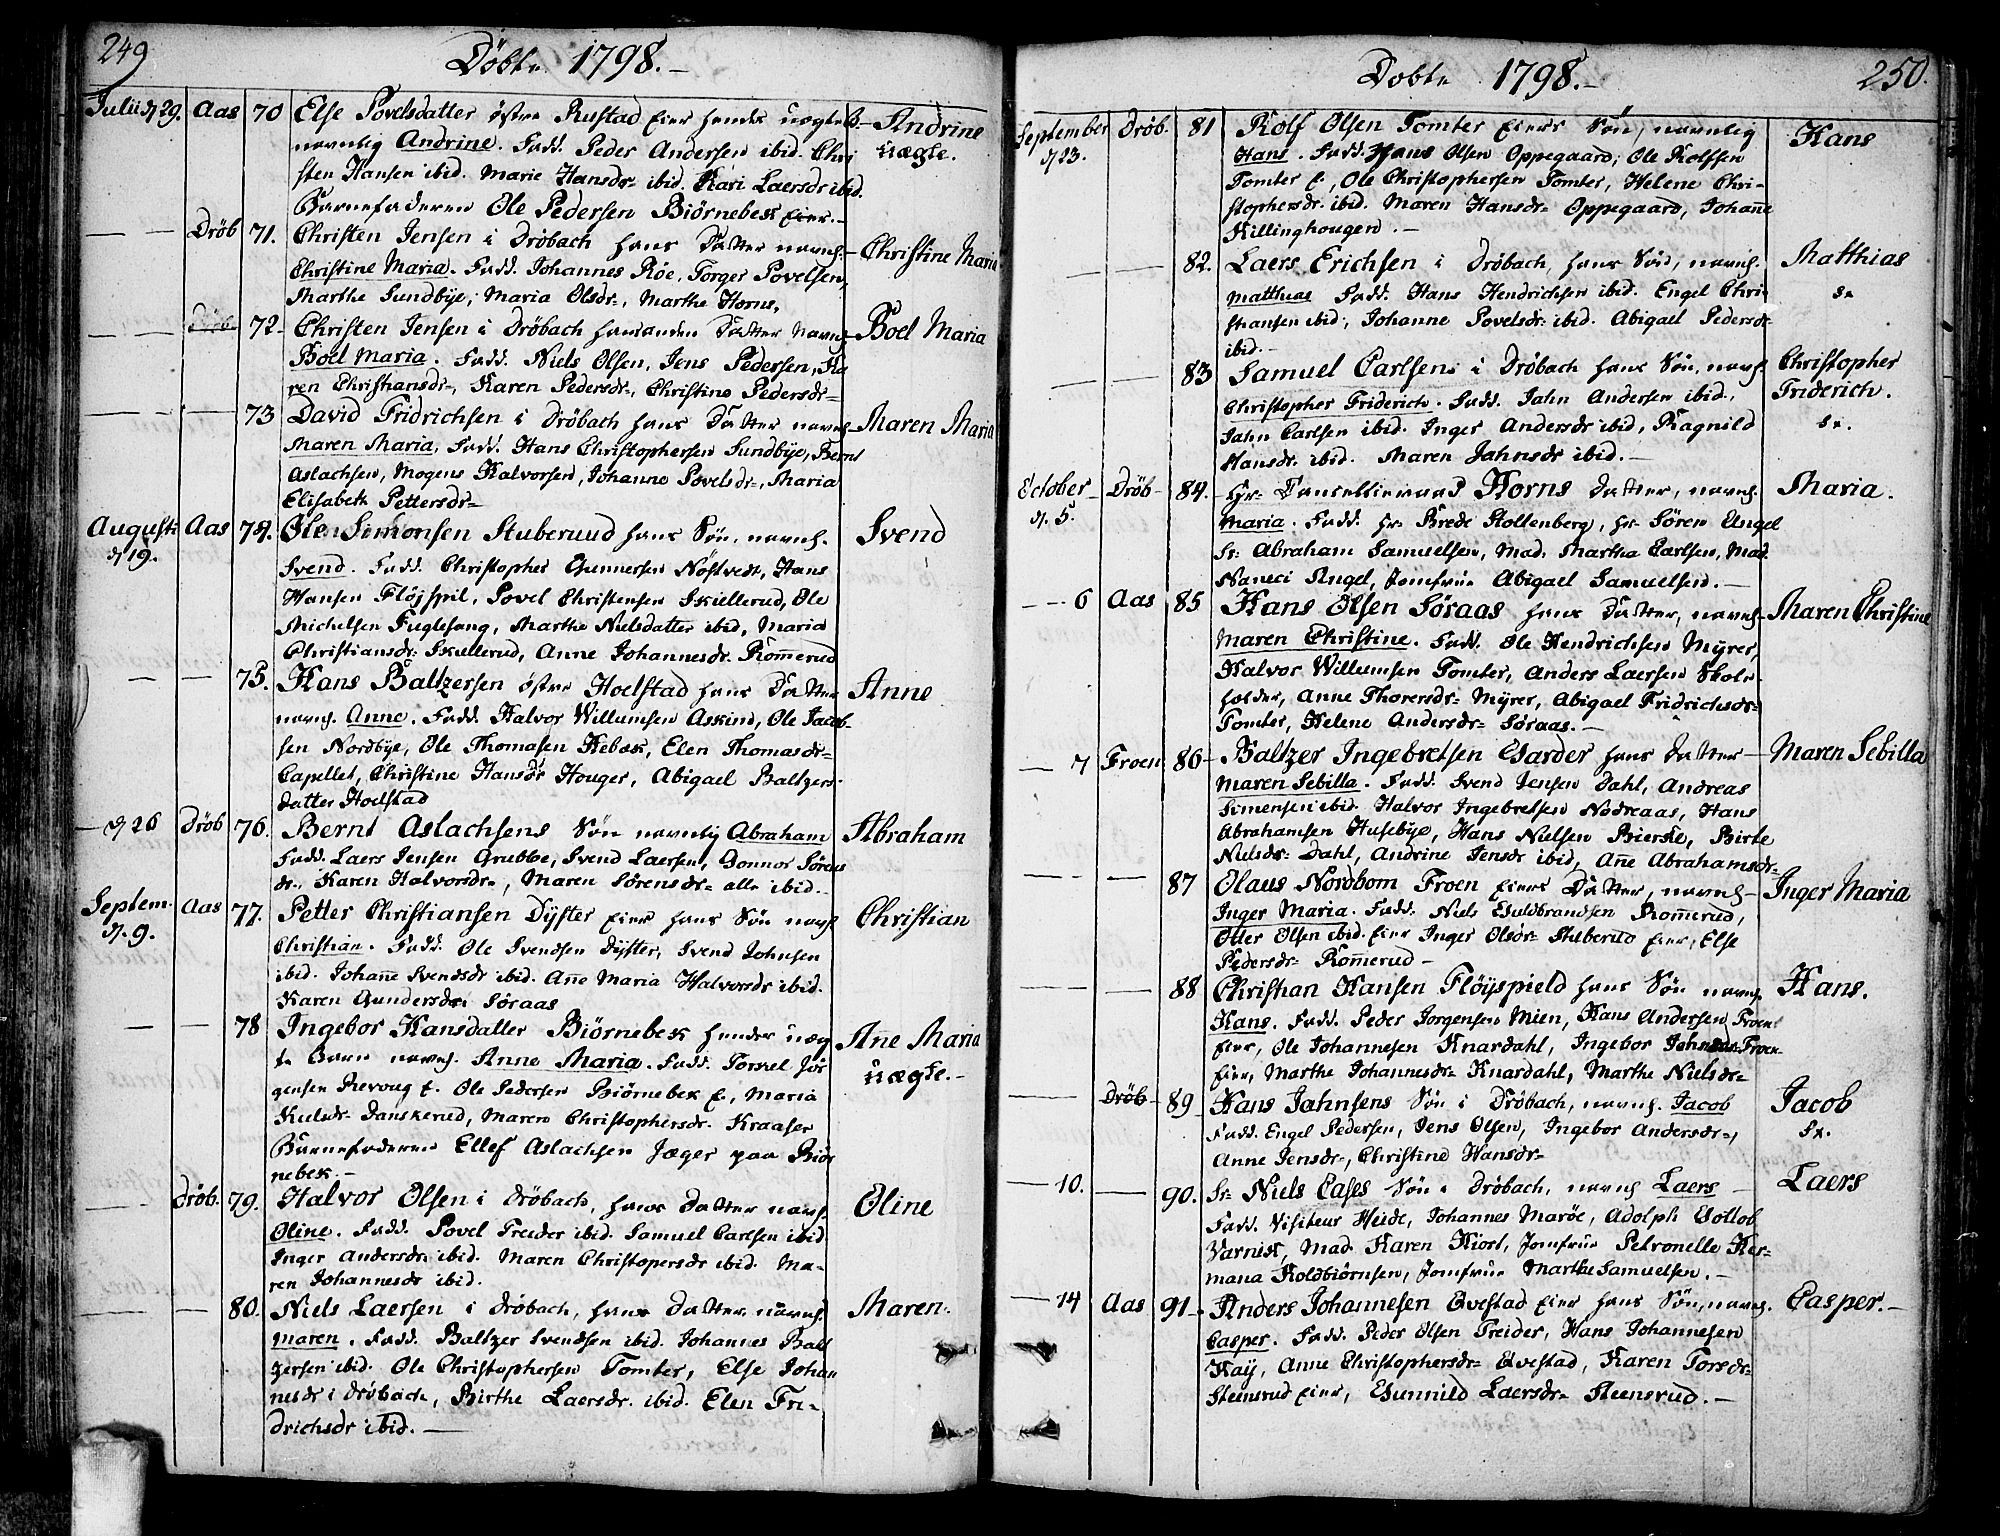 249
Döbte 1798.-
Julii d 29. Aas 70 Else Povelsdatter östre Rustad Eier hendes uægte B- Andrine
navnlig Andrine. Fadd. Peder Andersen ibid. Chri uægte.
sten Hansen ibid. Marie Hansdr- ibid. Kari Laersdr ibid.
Barnefaderen Ole Pedersen Biörnebek Eier.-
Dröb 71. Christen Jensen i Dröbach hans Datter navnl- Christine Maria
Christine Maria. Fadd. Johannes Röe, Torger Povelsen,
Marthe Sundbye, Maria Olsdr-, Marthe Horns.
Dröb 72- Christen Jensen i Dröbach hans anden Datter navnl- Boel Maria
Boel Maria. Fadd. Niels Olsen, Jens Pedersen, Ka
ren Christiansdr-, Karen Pedersdr-, Christine Pedersdr-
73 David Fridrichsen i Dröbach hans Datter navnl- Maren Maria
Maren Maria, Fadd. Hans Christophersen Sundbye, Bernt
Aslachsen, Mogens Halvorsen, Johanne Povelsdr-, Maria
Elisabeth Pettersdr-
Augusti d 19. Aas 74. Ole Simonsen Stuberud hans Sön, navnl. Svend
Svend. Fadd. Christopher Gunnersen Nöstvedt, Hans
Hansen Flöjspil, Povel Christensen Skullerud, Ole
Michelsen Fuglesang, Marthe Nielsdatter ibid, Maria
Christiansdr- Skullerud, Anne Johannesdr- Rom̃erud
75. Hans Baltzersen östre Hoelstad hans Datter Anne
navnl. Anne. Fadd. Halvor Willumsen Askind, Ole Jacob-
sen Nordbye, Ole Thomasen Kebæk, Elen Thomasdr-
Capellet, Christine Hansdr Houger, Abigael Baltzers-
datter Hoelstad
d 26 Dröb 76. Bernt Aslachsens Sön navnlig Abraham Abraham
Fadd. Laers Jensen Grubbe, Svend Laersen, Gonnor Sörens
dr-, Karen Halvorsdr-, Maren Sörensdr- alle ibid.-
Septem- d. 9. Aas 77. Petter Christiansen Dyster Eier hans Sön navnl. Christian
Christian. Fadd. Ole Svendsen Dyster, Svend Johnsen
ibid. Johañe Svendsdr ibid. Añe Maria Halvorsdr ibid.
Karen Gundersdr Söraas
78 Ingebor Hansdatter Biörnebek hendes uæg Añe Maria
te Barn navnl. Anne Maria. Fadd. Torkel Jör uægte.-
gensen Revoug E. Ole Pedersen Biörnebek E, Maria
Nielsdr- Danskerud, Maren Christophersdr- Kraager
Barnefaderen Ellef Aslachsen Jæger paa Biör
nebek.-
Dröb. 79. Halvor Olsen i Dröbach, hans Datter navnl. Oline
Oline. Fadd. Povel Treider ibid. Samuel Carlsen ibid
Inger Andersdr ibid. Maren Christopersdr ibid. Ma-
ren Johannesdr ibid.
80. Niels Laersen i Dröbach, hans Datter, navnl. Maren.
Maren. Fadd. Baltzer Svendsen ibid. Johannes Balt
zersen ibid. Ole Christophersen Tomter, Else Johan
nesdr i Dröbach, Birthe Laersdr. ibid. Elen Fri-
drichsdr ibid.-
250.
Döbte 1798.-
September d 23. Dröb. 81 Rolf Olsen Tomter Eiers Sön, navnlig Hans
Hans. Fadd. Hans Olsen Oppegaard, Ole Rolfsen
Tomter E, Ole Christophersen Tomter, Helene Chri-
stophersdr- ibid. Maren Hansdr- Oppegaard, Johañe
Killinghougen.-
82. Laers Erichsen i Dröbach, hans Sön, navnl. Matthias
Matthias Fadd. Hans Hendrichsen ibid. Engel Chri-
stiansen ibid, Johanne Povelsdr- ibid. Abigael Pedersdr-
ibid.-
83 Samuel Carlsens i Dröbach hans Sön, navnl. Christopher
Christopher Friderich. Fadd. Jahn Andersen ibid, Friderich.
Jahn Carlsen ibid. Inger Andersdr ibid, Ragnild
Hansdr. ibid. Maren Jahnsdr ibid.-
October d. 5. Dröb- 84. Hr- Cancellieraad Horns Datter, navnl. Maria.
Maria. Fadd. Hr- Brede Stoltenberg, Hr- Sören Angel
Sr- Abraham Samuelsen, Mad. Martha Carlsen, Mad.
Naneci Angel, Jomfrue Abigael Samuelsen.-
6 Aas 85 Hans Olsen Söraas hans Datter, navnl- Maren Christine
Maren Christine. Fadd. Ole Hendrichsen Myrer,
Halvor Willumsen Tomter, Anders Laersen Skole-
holder, Anne Thorersdr- Myrer, Abigael Fridrichsdr-
Tomter, Helene Andersdr- Söraas.-
7 Froen 86- Baltzer Ingebretsen Garder hans Datter Maren Sebilla
Maren Sebilla. Fadd. Svend Jensen Dahl, Andreas
Simensen ibid. Halvor Ingebretsen Nodreaas, Hans
Abrahamsen Husebye, Hans Nielsen Bierke, Birte
Nielsdr- Dahl, Andrine Jensdr ibid, Añe Abrahamsdr-
87 Olaus Nordbom Froen Eiers Datter, navnl- Inger Maria
Inger Maria. Fadd. Niels Guldbrandsen Rom̃erud,
Otter Olsen ibid. Eier Inger Olsdr- Stuberud Eier, Else
Pedersdr- Rom̃erud-
88 Christian Hansen Flöyspield hans Sön navnl. Hans.
Hans. Fadd. Peder Jorgensen Mien, Hans Andersen Froen
Eier, Ole Johannesen Knardahl, Ingebor Froen
Eier, Marthe Johannesdr- Knardahl, Marthe Nielsdr-
Dröb 89 Hans Jahnsens Sön i Dröbach, navnl. Jacob Jacob
Fadd. Engel Pedersen, Jens Olsen, Ingebor Andersdr-,
Anne Jensdr-, Christine Hansdr-
10. 90. Sr- Niels Cases Sön i Dröbach, navnl Laers- Laers
Fadd. Visiteur Heide, Johannes Maröe, Adolph Gottlob
Varnist, Mad. Karen Hiort, Jomfrue Petronelle Her-
mana Koldbiörnsen, Jomfrue Marthe Samuelsen.-
14 Aas 91- Anders Johannesen Qvestad Eier hans Sön, navnl. Casper.-
Casper. Fadd. Peder Olsen Treider, Hans Johannesen
Kaÿ, Anne Christophersdr- Qvestad, Karen Torsdr-
Steensrud Eier, Gunnild Laersdr- Steensrud.-